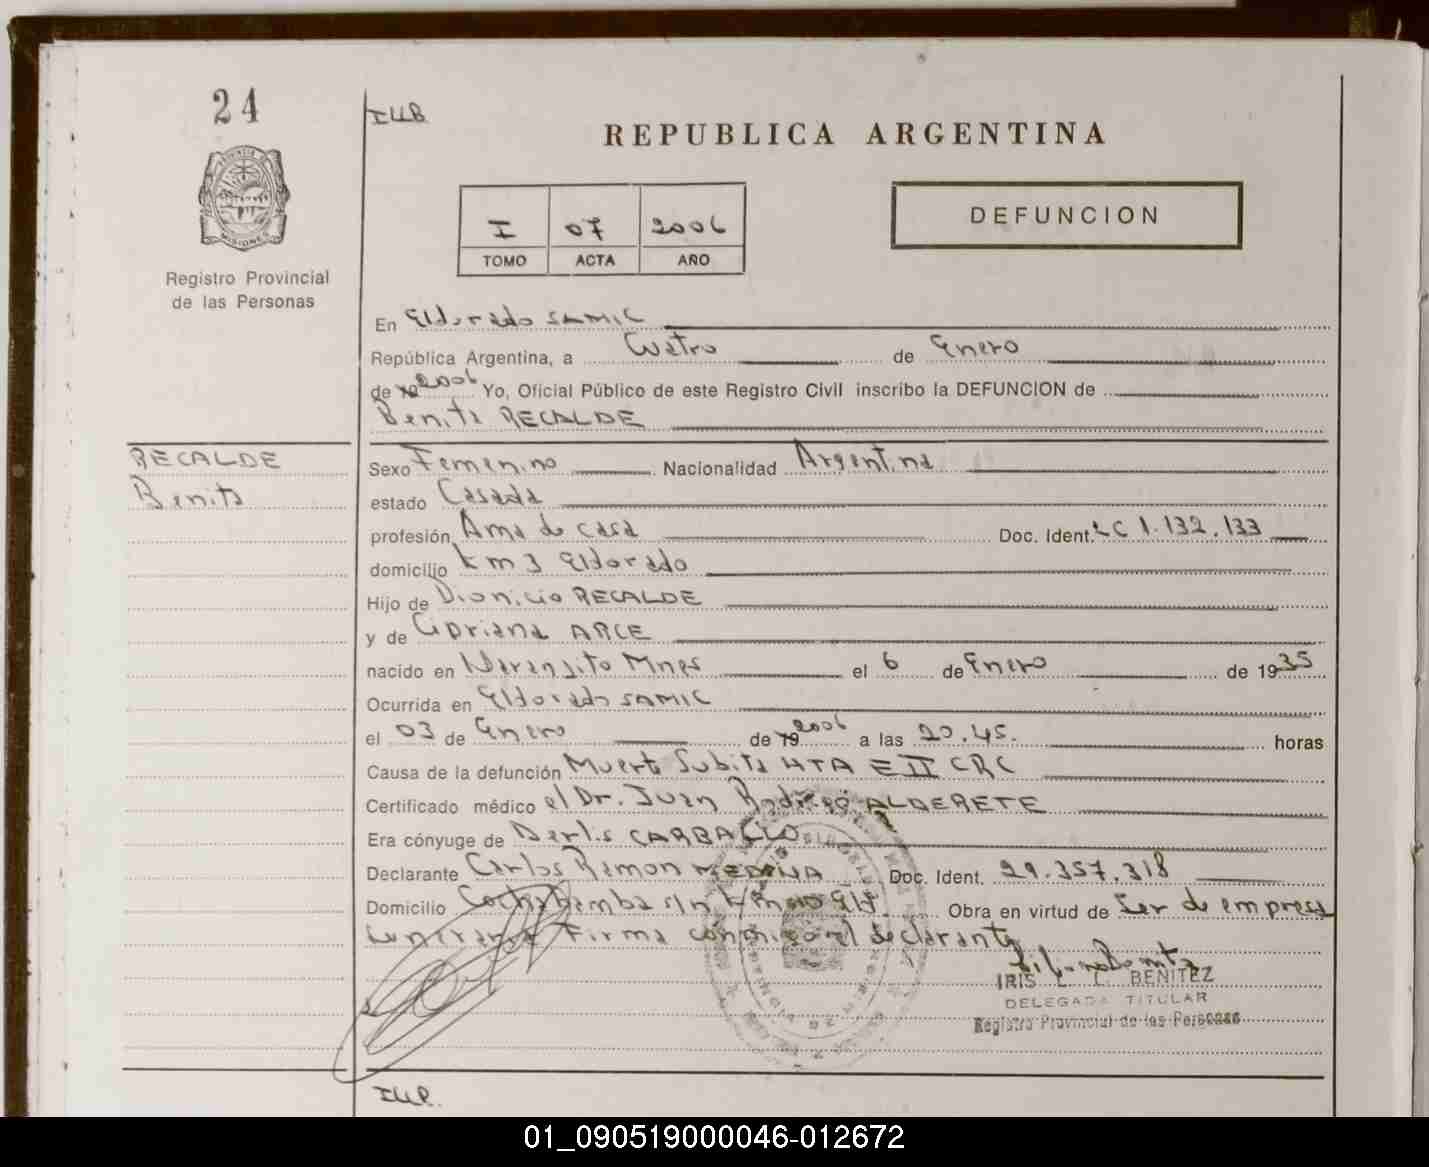 24
PROVINCIA DE
MISIONES
Registro Provincial
de las Personas
REPUBLICA ARGENTINA
I 07 2006
TOMO ACTA AÑO
DEFUNCION
En Eldorado SAMIC
República Argentina, a Cuatro de Enero
de 19 2006 Yo, Oficial Público de este Registro Civil inscribo la DEFUNCION de
Benita RECALDE
RECALDE
Benita
Sexo Femenino Nacionalidad Argentina
estado Casada
profesión Ama de casa Doc. Ident. LC 1.132.133
domicilio Km 3 Eldorado
Hijo de Dionicio RECALDE
y de Cipriana ARCE
nacido en Naranjito Mnes el 6 de Enero de 1935
Ocurrida en Eldorado SAMIC
el 03 de Enero de 19 2006 a las 20.45. horas
Causa de la defunción Muerte Subita HTA E II CRC
Certificado médico el Dr. Juan Rodrigo ALDERETE
Era cónyuge de Derlis CARBALLO
Declarante Carlos Ramon MEDINA Doc. Ident. 29.357.318
Domicilio Cochabamba s/n Km 10 Eld. Obra en virtud de Ser de empresa
funeraria Firma conmigo el declarante
IRIS L. L. BENITEZ
DELEGADA TITULAR
Registro Provincial de las Personas
01_090519000046-012672